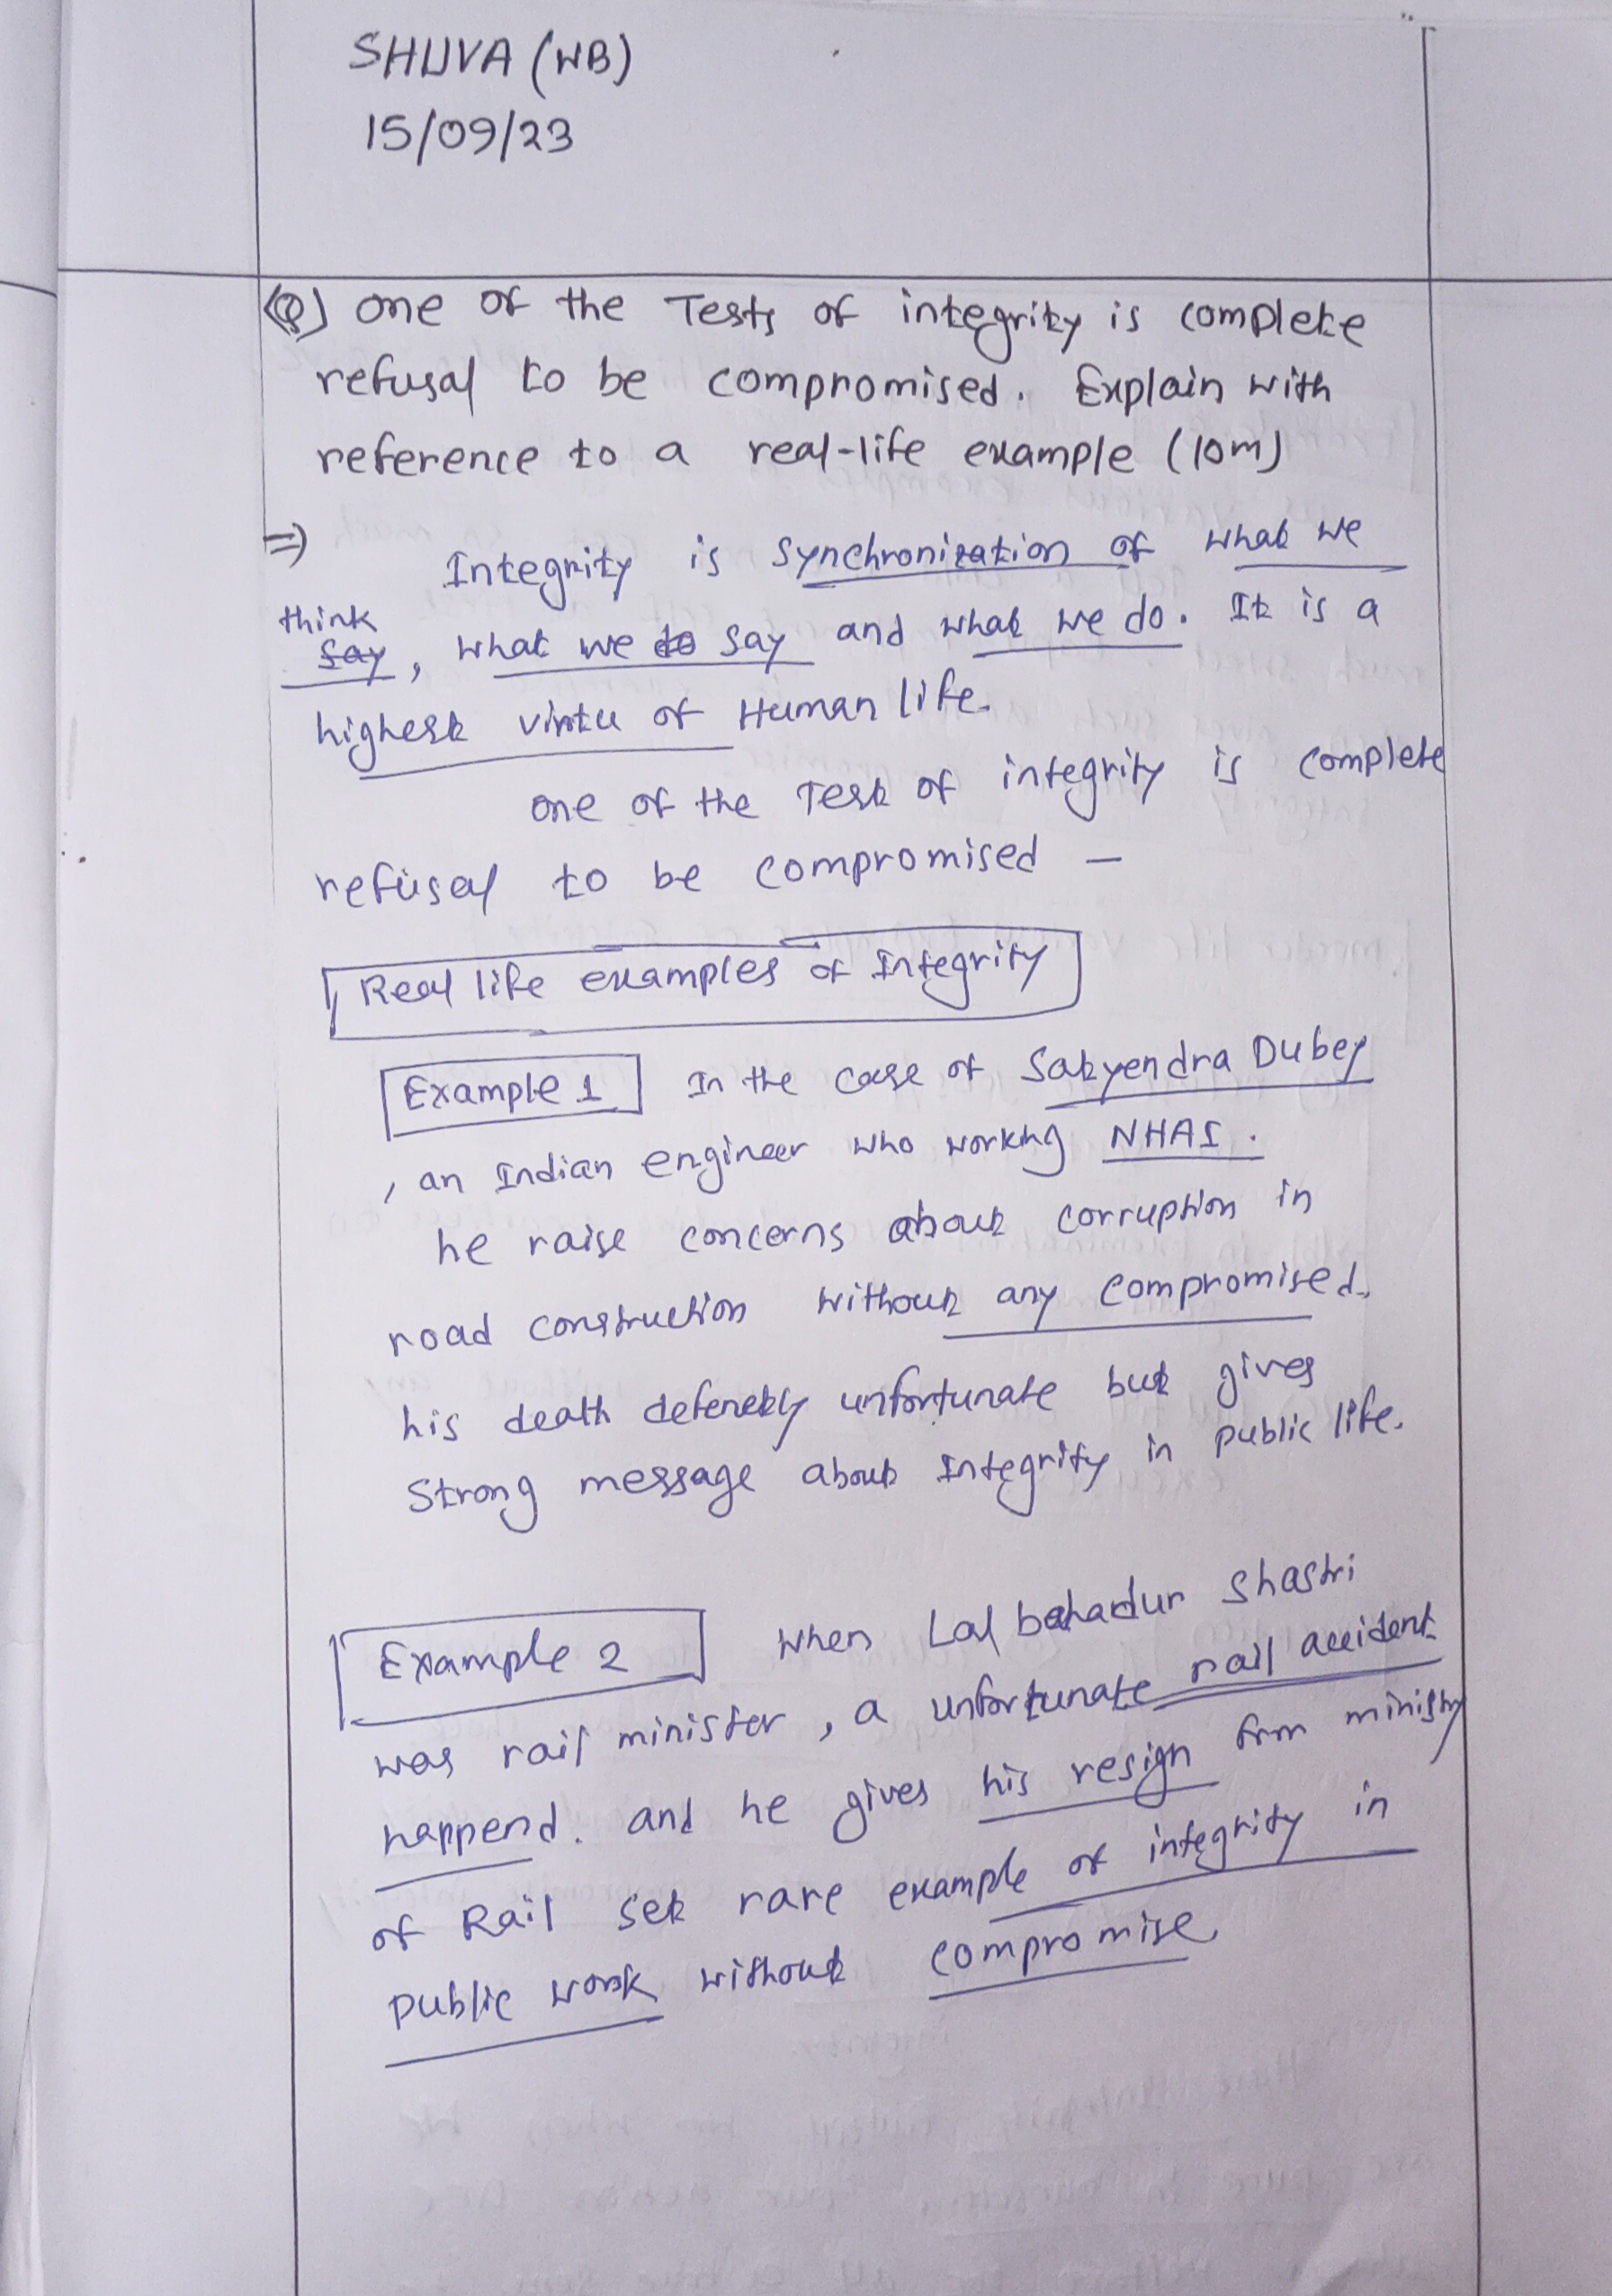 SHUVA (WB)
15/09/23
(Q) one of the Tests of integrity is complete
refusal to be compromised. Explain with
reference to a real-life example (10m)
⇒ Integrity is synchronization of what we
think
say, what we do say and what we do. It is a
highest virtu of Human life.
one of the Test of integrity is complete
refusal to be compromised —
Real life examples of Integrity
Example 1 In the case of Satyendra Dubey
, an Indian engineer who working NHAI.
he raise concerns about corruption in
road construction without any compromised.
his death defenetly unfortunate but gives
Strong message about Integrity in public life.
Example 2 When Lal bahadur Shastri
was rail minister, a unfortunate rail accident
happend. and he gives his resign from ministry
of Rail set rare example of integrity in
public work without compromise